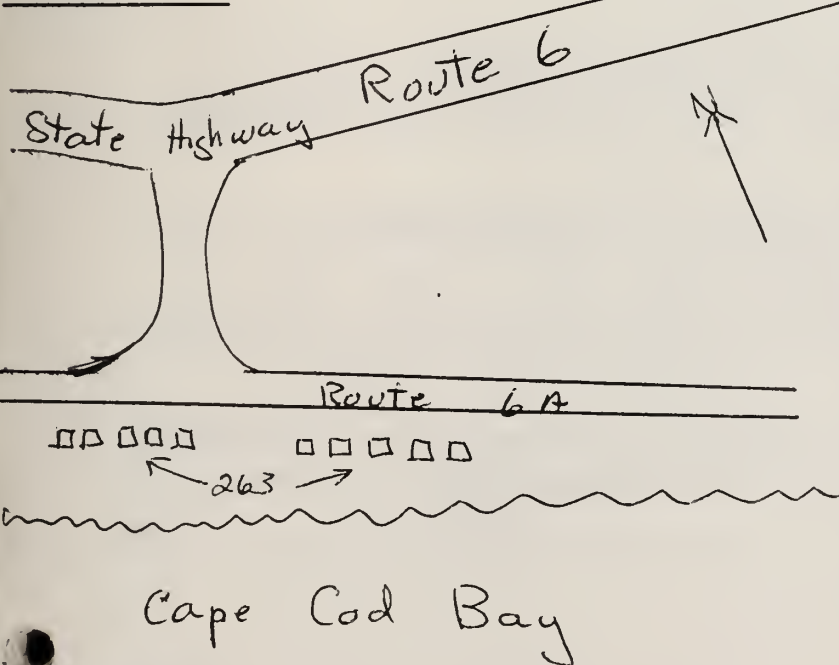 Route 6
State Highway
Route 6A
263
Cape Cod Bay